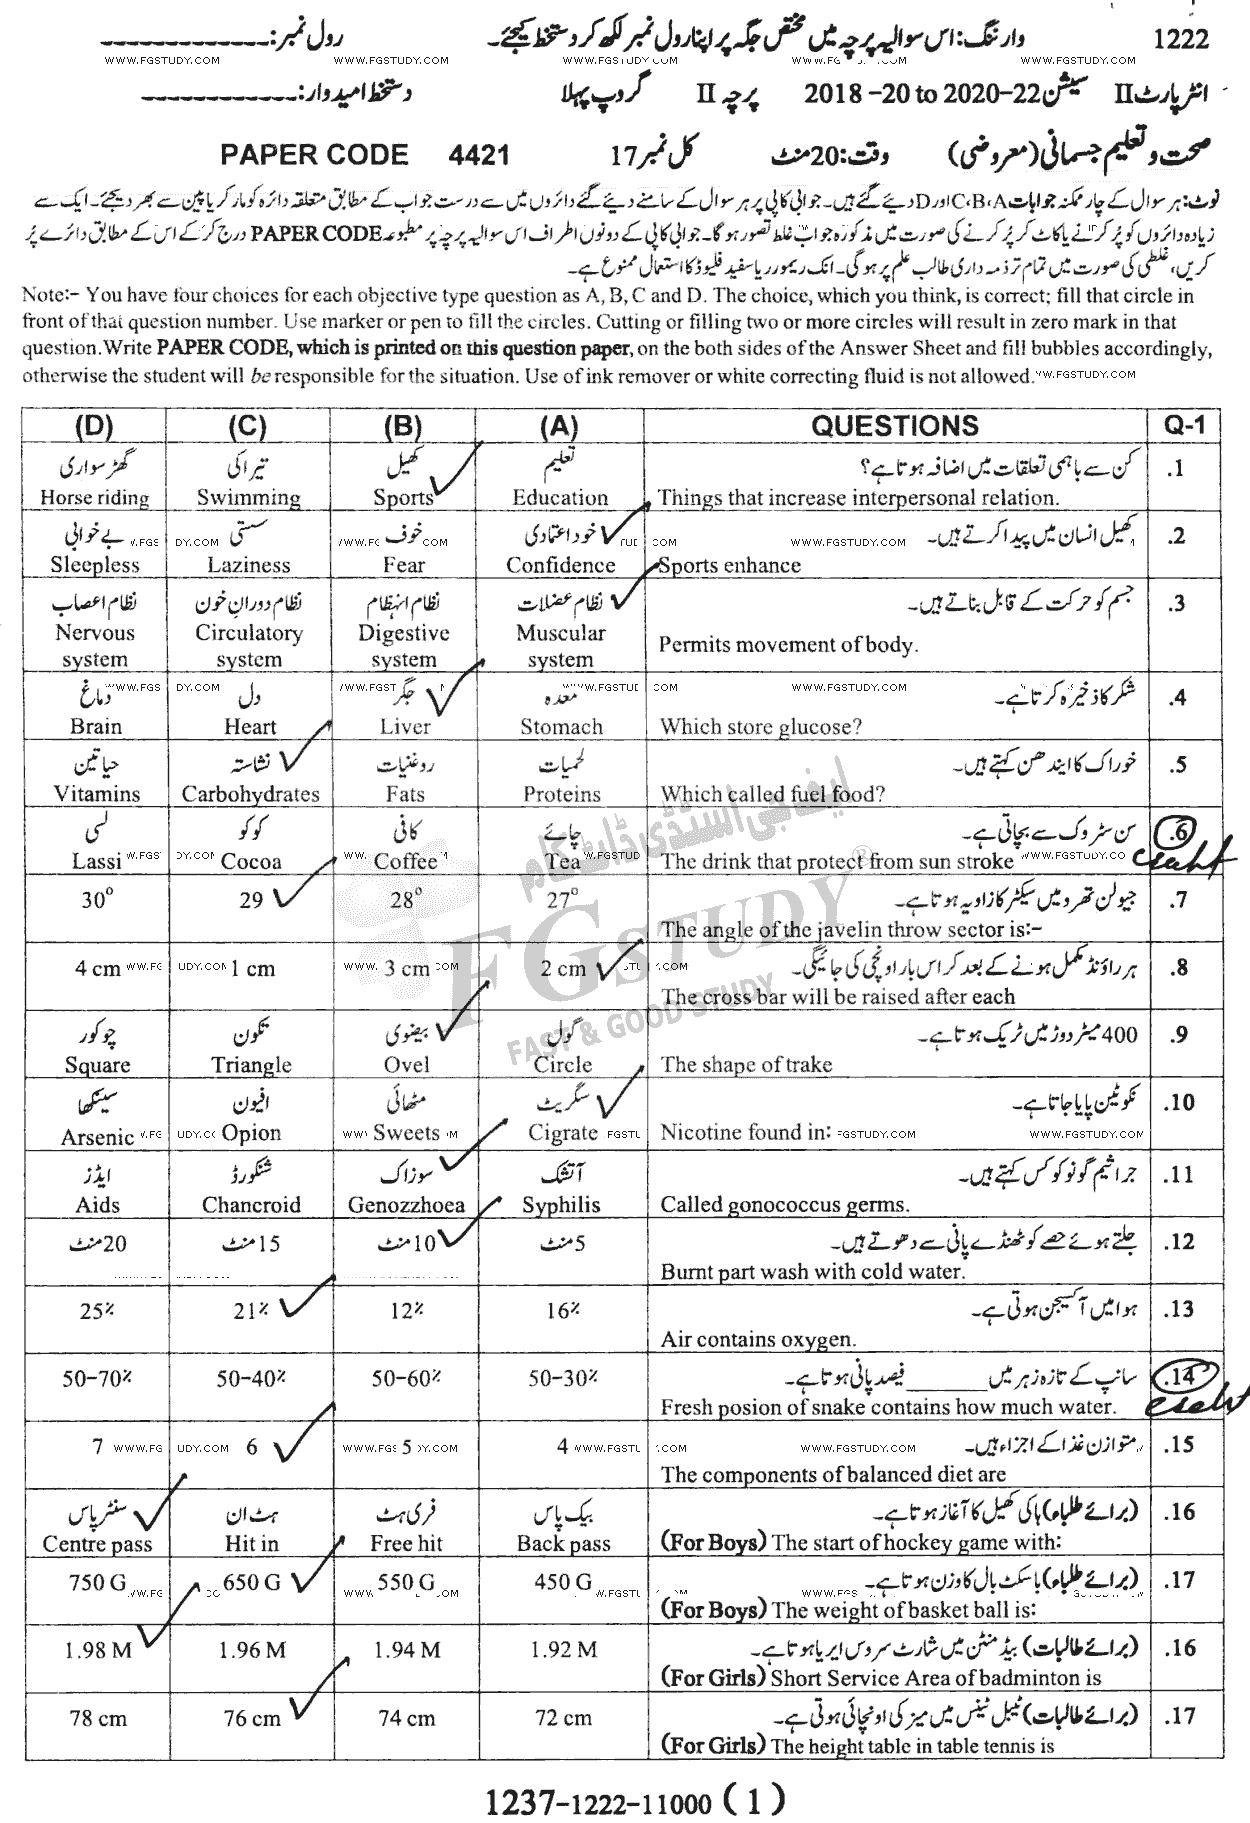 1222 وارننگ: اس سوالیہ پرچہ میں مختص جگہ پر اپنا رول نمبر لکھ کر دستخط کیجئے۔ رول نمبر: _____________
WWW.FGSTUDY.COM WWW.FGSTUDY.COM WWW.FGSTUDY.COM WWW.FGSTUDY.COM WWW.FGSTUDY.COM
انٹر پارٹ II سیشن 2018-20 to 2020-22 پرچہ II گروپ پہلا دستخط امیدوار: ____________
صحت و تعلیم جسمانی (معروضی) وقت: 20 منٹ کل نمبر 17 PAPER CODE 4421
نوٹ: ہر سوال کے چار ممکنہ جوابات A، B، C اور D دیئے گئے ہیں۔ جوابی کاپی پر ہر سوال کے سامنے دیئے گئے دائروں میں سے درست جواب کے مطابق متعلقہ دائرہ کو مارکر یا پین سے بھر دیجئے۔ ایک سے
زیادہ دائروں کو پُر کرنے یا کاٹ کر پُر کرنے کی صورت میں مذکورہ جواب غلط تصور ہو گا۔ جوابی کاپی کے دونوں اطراف اس سوالیہ پرچہ پر مطبوعہ PAPER CODE درج کر کے اس کے مطابق دائرے پُر
کریں، غلطی کی صورت میں تمام تر ذمہ داری طالب علم پر ہو گی۔ انک ریمور ریا سفید فلیوڈ کا استعمال ممنوع ہے۔
Note:- You have four choices for each objective type question as A, B, C and D. The choice, which you think, is correct; fill that circle in
front of that question number. Use marker or pen to fill the circles. Cutting or filling two or more circles will result in zero mark in that
question.Write PAPER CODE, which is printed on this question paper, on the both sides of the Answer Sheet and fill bubbles accordingly,
otherwise the student will be responsible for the situation. Use of ink remover or white correcting fluid is not allowed.
(D) (C) (B) (A) QUESTIONS Q-1
گھڑ سواری تیراکی کھیل تعلیم کن سے باہمی تعلقات میں اضافہ ہوتا ہے؟ .1
Horse riding Swimming Sports Education Things that increase interpersonal relation.
بے خوابی سستی خوف خود اعتمادی کھیل انسان میں پیدا کرتے ہیں۔ .2
Sleepless Laziness Fear Confidence Sports enhance
نظام اعصاب نظام دوران خون نظام انہظام نظام عضلات جسم کو حرکت کے قابل بناتے ہیں۔ .3
Nervous system Circulatory system Digestive system Muscular system Permits movement of body.
دماغ دل جگر معدہ شکر کا ذخیرہ کرتا ہے۔ .4
Brain Heart Liver Stomach Which store glucose?
حیاتین نشاستہ روغنیات لحمیات خوراک کا ایندھن کہتے ہیں۔ .5
Vitamins Carbohydrates Fats Proteins Which called fuel food?
لسی کوکو کافی چائے سن سٹروک سے بچاتی ہے۔ .6
Lassi Cocoa Coffee Tea The drink that protect from sun stroke
30° 29 28° 27° جیولن تھرو میں سیکٹر کا زاویہ ہوتا ہے۔ .7
The angle of the javelin throw sector is:-
4 cm 1 cm 3 cm 2 cm ہر راؤنڈ مکمل ہونے کے بعد کراس بار اونچی کی جائیگی۔ .8
The cross bar will be raised after each
چوکور تکون بیضوی گول 400 میٹر دوڑ میں ٹریک ہوتا ہے۔ .9
Square Triangle Ovel Circle The shape of trake
سینکھا افیون مٹھائی سگریٹ نکوٹین پایا جاتا ہے۔ .10
Arsenic Opion Sweets Cigrate Nicotine found in:
ایڈز شنکورڈ سوزاک آتشک جراثیم گونوکوکس کہتے ہیں۔ .11
Aids Chancroid Genozzhoea Syphilis Called gonococcus germs.
20منٹ 15منٹ 10منٹ 5منٹ جلتے ہوئے حصے کو ٹھنڈے پانی سے دھوتے ہیں۔ .12
Burnt part wash with cold water.
25% 21% 12% 16% ہوا میں آکسیجن ہوتی ہے۔ .13
Air contains oxygen.
50-70% 50-40% 50-60% 50-30% سانپ کے تازہ زہر میں _______ فیصد پانی ہوتا ہے۔ .14
Fresh posion of snake contains how much water.
7 6 5 4 متوازن غذا کے اجزاء ہیں۔ .15
The components of balanced diet are
سنٹر پاس ہٹ ان فری ہٹ بیک پاس (برائے طلباء) ہاکی کھیل کا آغاز ہوتا ہے۔ .16
Centre pass Hit in Free hit Back pass (For Boys) The start of hockey game with:
750 G 650 G 550 G 450 G (برائے طلباء) باسکٹ بال کا وزن ہوتا ہے۔ .17
(For Boys) The weight of basket ball is:
1.98 M 1.96 M 1.94 M 1.92 M (برائے طالبات) بیڈ منٹن میں شارٹ سروس ایریا ہوتا ہے۔ .16
(For Girls) Short Service Area of badminton is
78 cm 76 cm 74 cm 72 cm (برائے طالبات) ٹیبل ٹینس میں میز کی اونچائی ہوتی ہے۔ .17
(For Girls) The height table in table tennis is
ایف جی اسٹڈی ڈاٹ کام
FGSTUDY
FAST & GOOD STUDY
1237-1222-11000 (1)